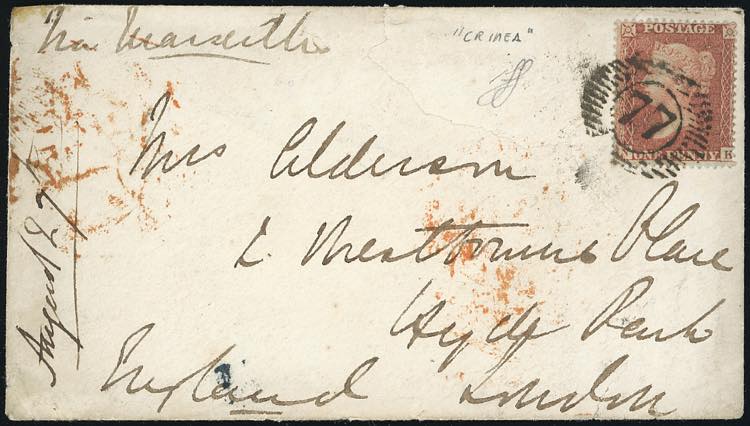 Via Marseille
"CRIMEA"
POSTAGE
77
ONE PENNY R
Mrs Alderson
2. Westbourne Place
Hyde Park
London
England
August 27